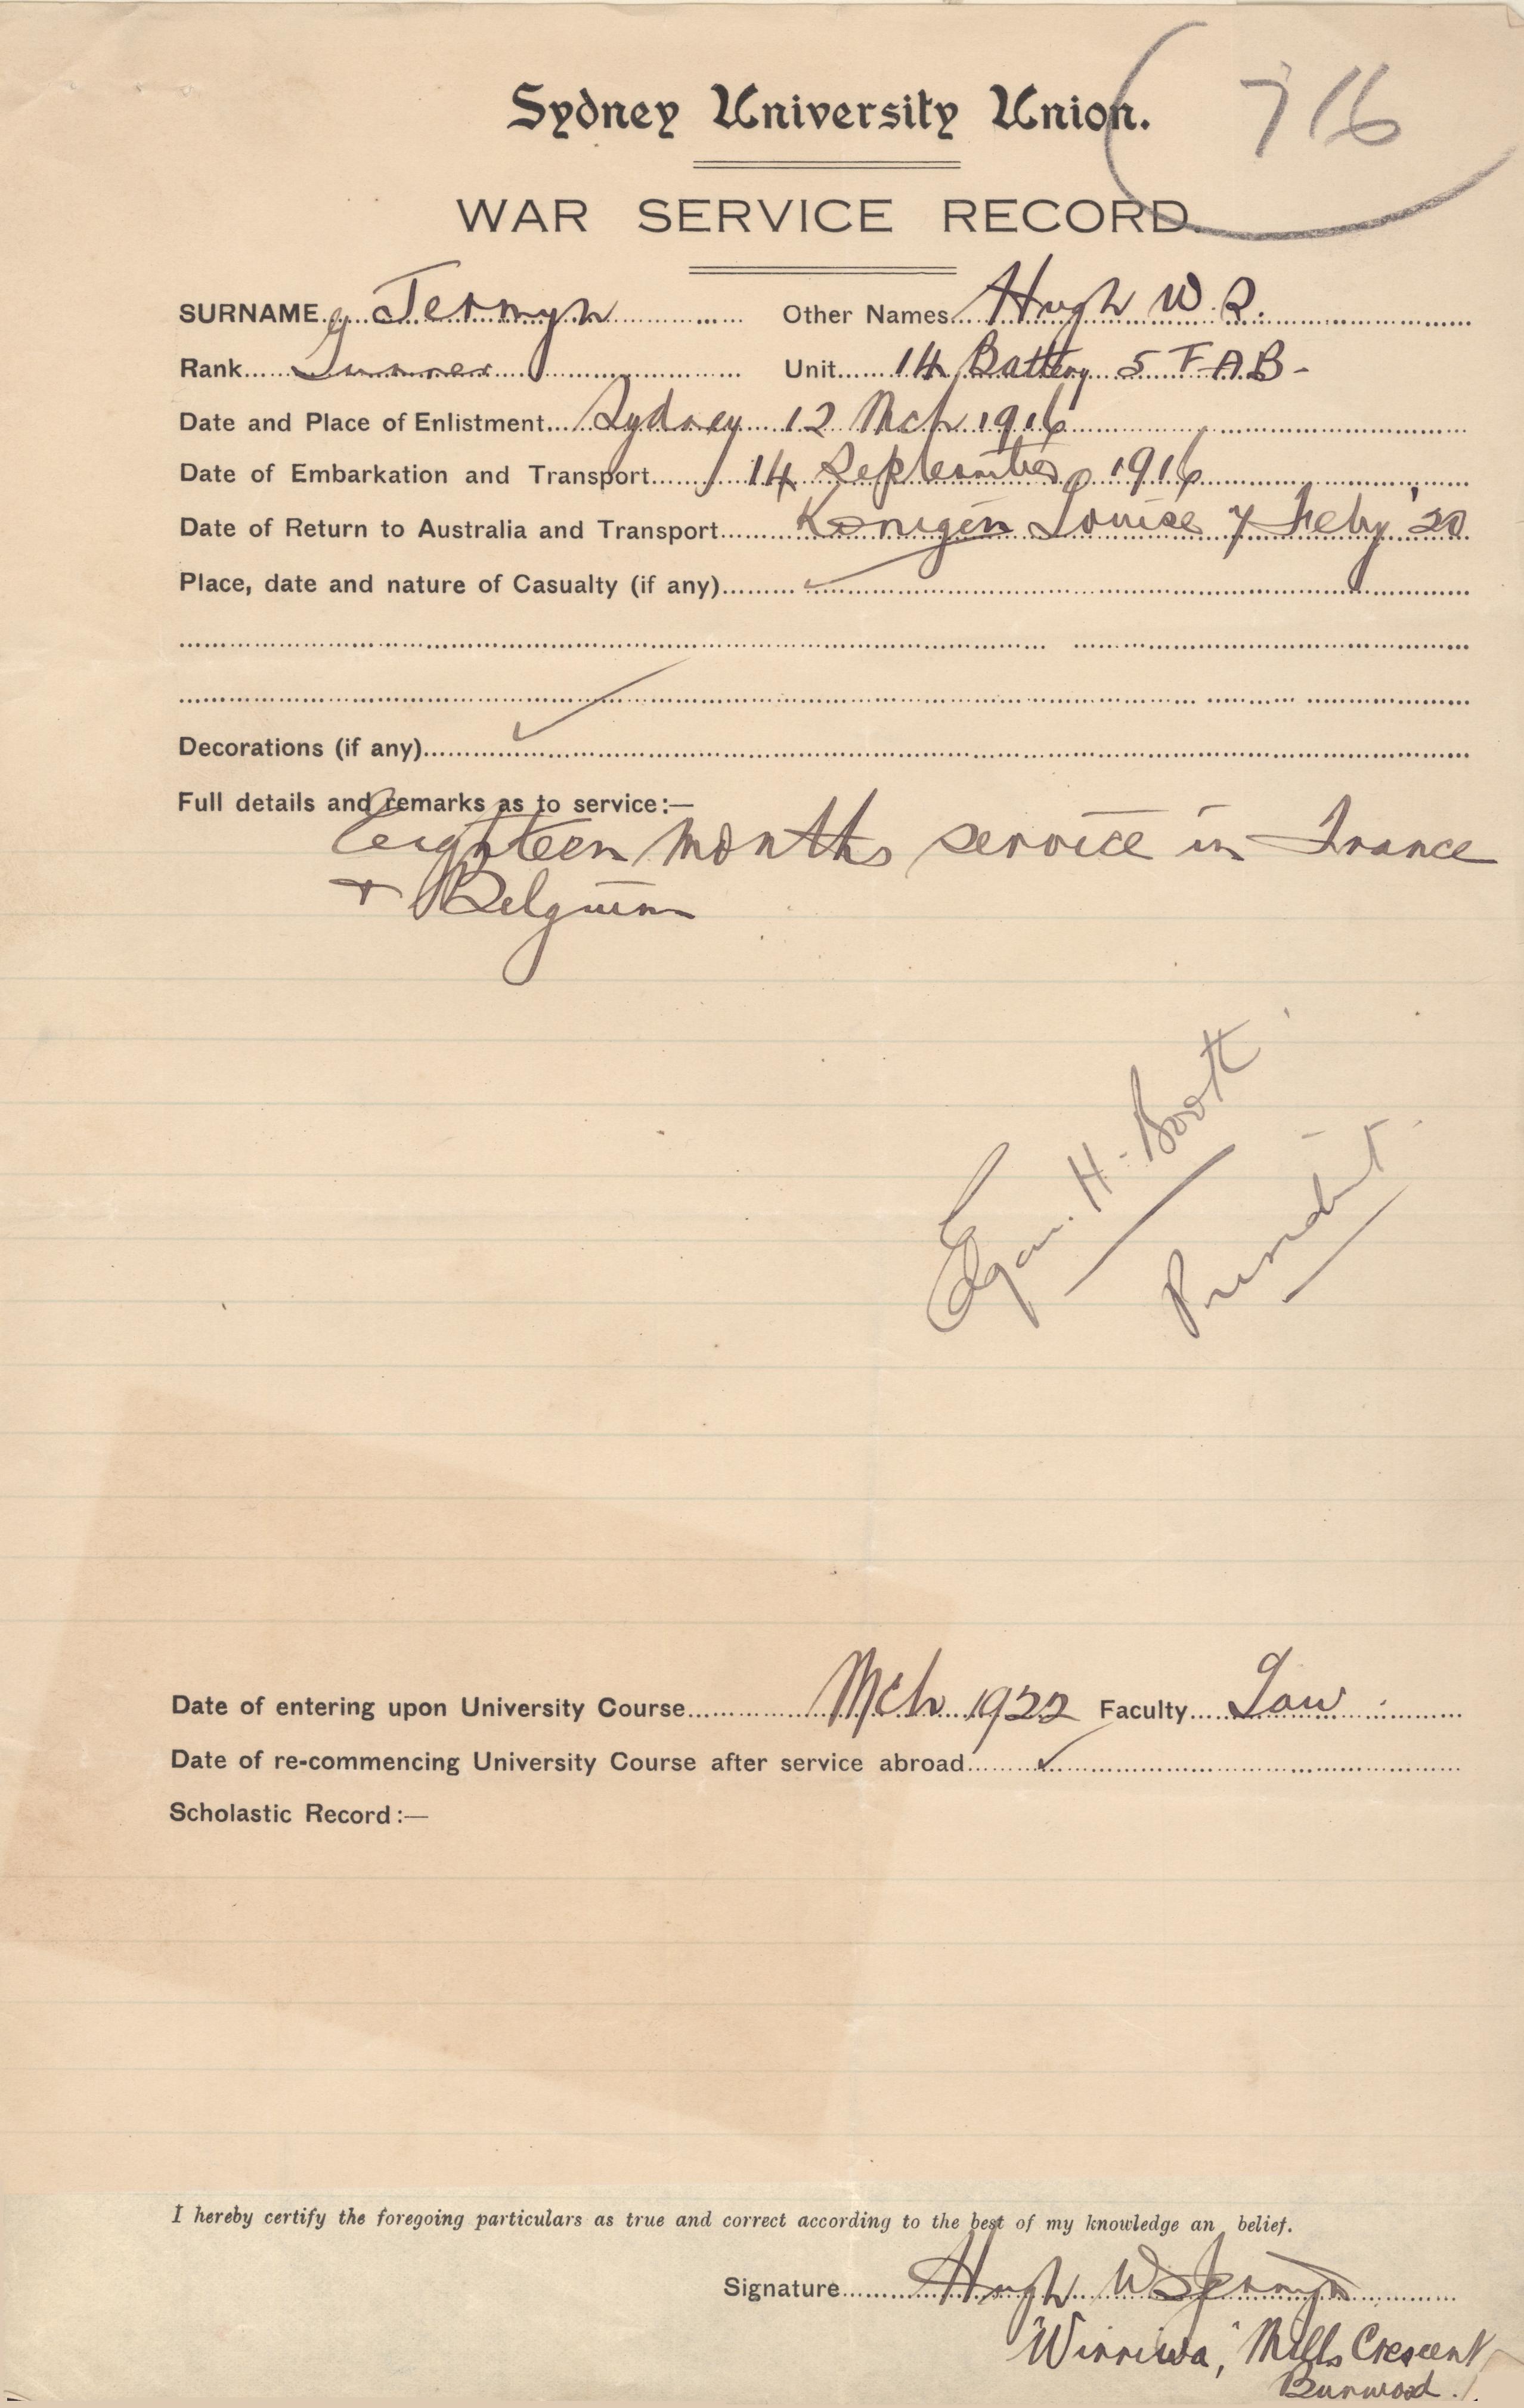 716
Sydney University Union.
WAR SERVICE RECORD.
SURNAME Jermyn Other Names Hugh W. S.
Rank Gunner Unit 14 Battery 5 F A B -
Date and Place of Enlistment Sydney 12 Mch 1916
Date of Embarkation and Transport 14 September 1916
Date of Return to Australia and Transport Konigen Louise 7 Feby '20
Place, date and nature of Casualty (if any)
Decorations (if any)
Full details and remarks as to service:—
Eighteen months service in France
+ Belgium
Edgar H. Booth
President
Date of entering upon University Course Mch 1922 Faculty Law
Date of re-commencing University Course after service abroad
Scholastic Record:—
I hereby certify the foregoing particulars as true and correct according to the best of my knowledge an belief.
Signature Hugh W S Jermyn
"Winniwa," Mills Crescent
Burwood.